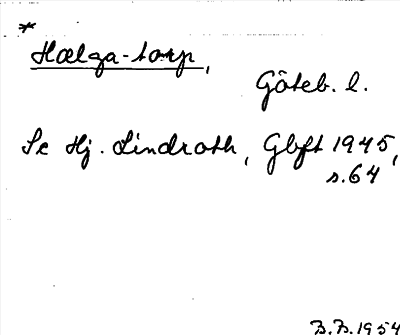 *
Hælga-torp,
Göteb. l.
Se Hj. Lindroth, Gbft 1945,
s. 64
B.B. 1954